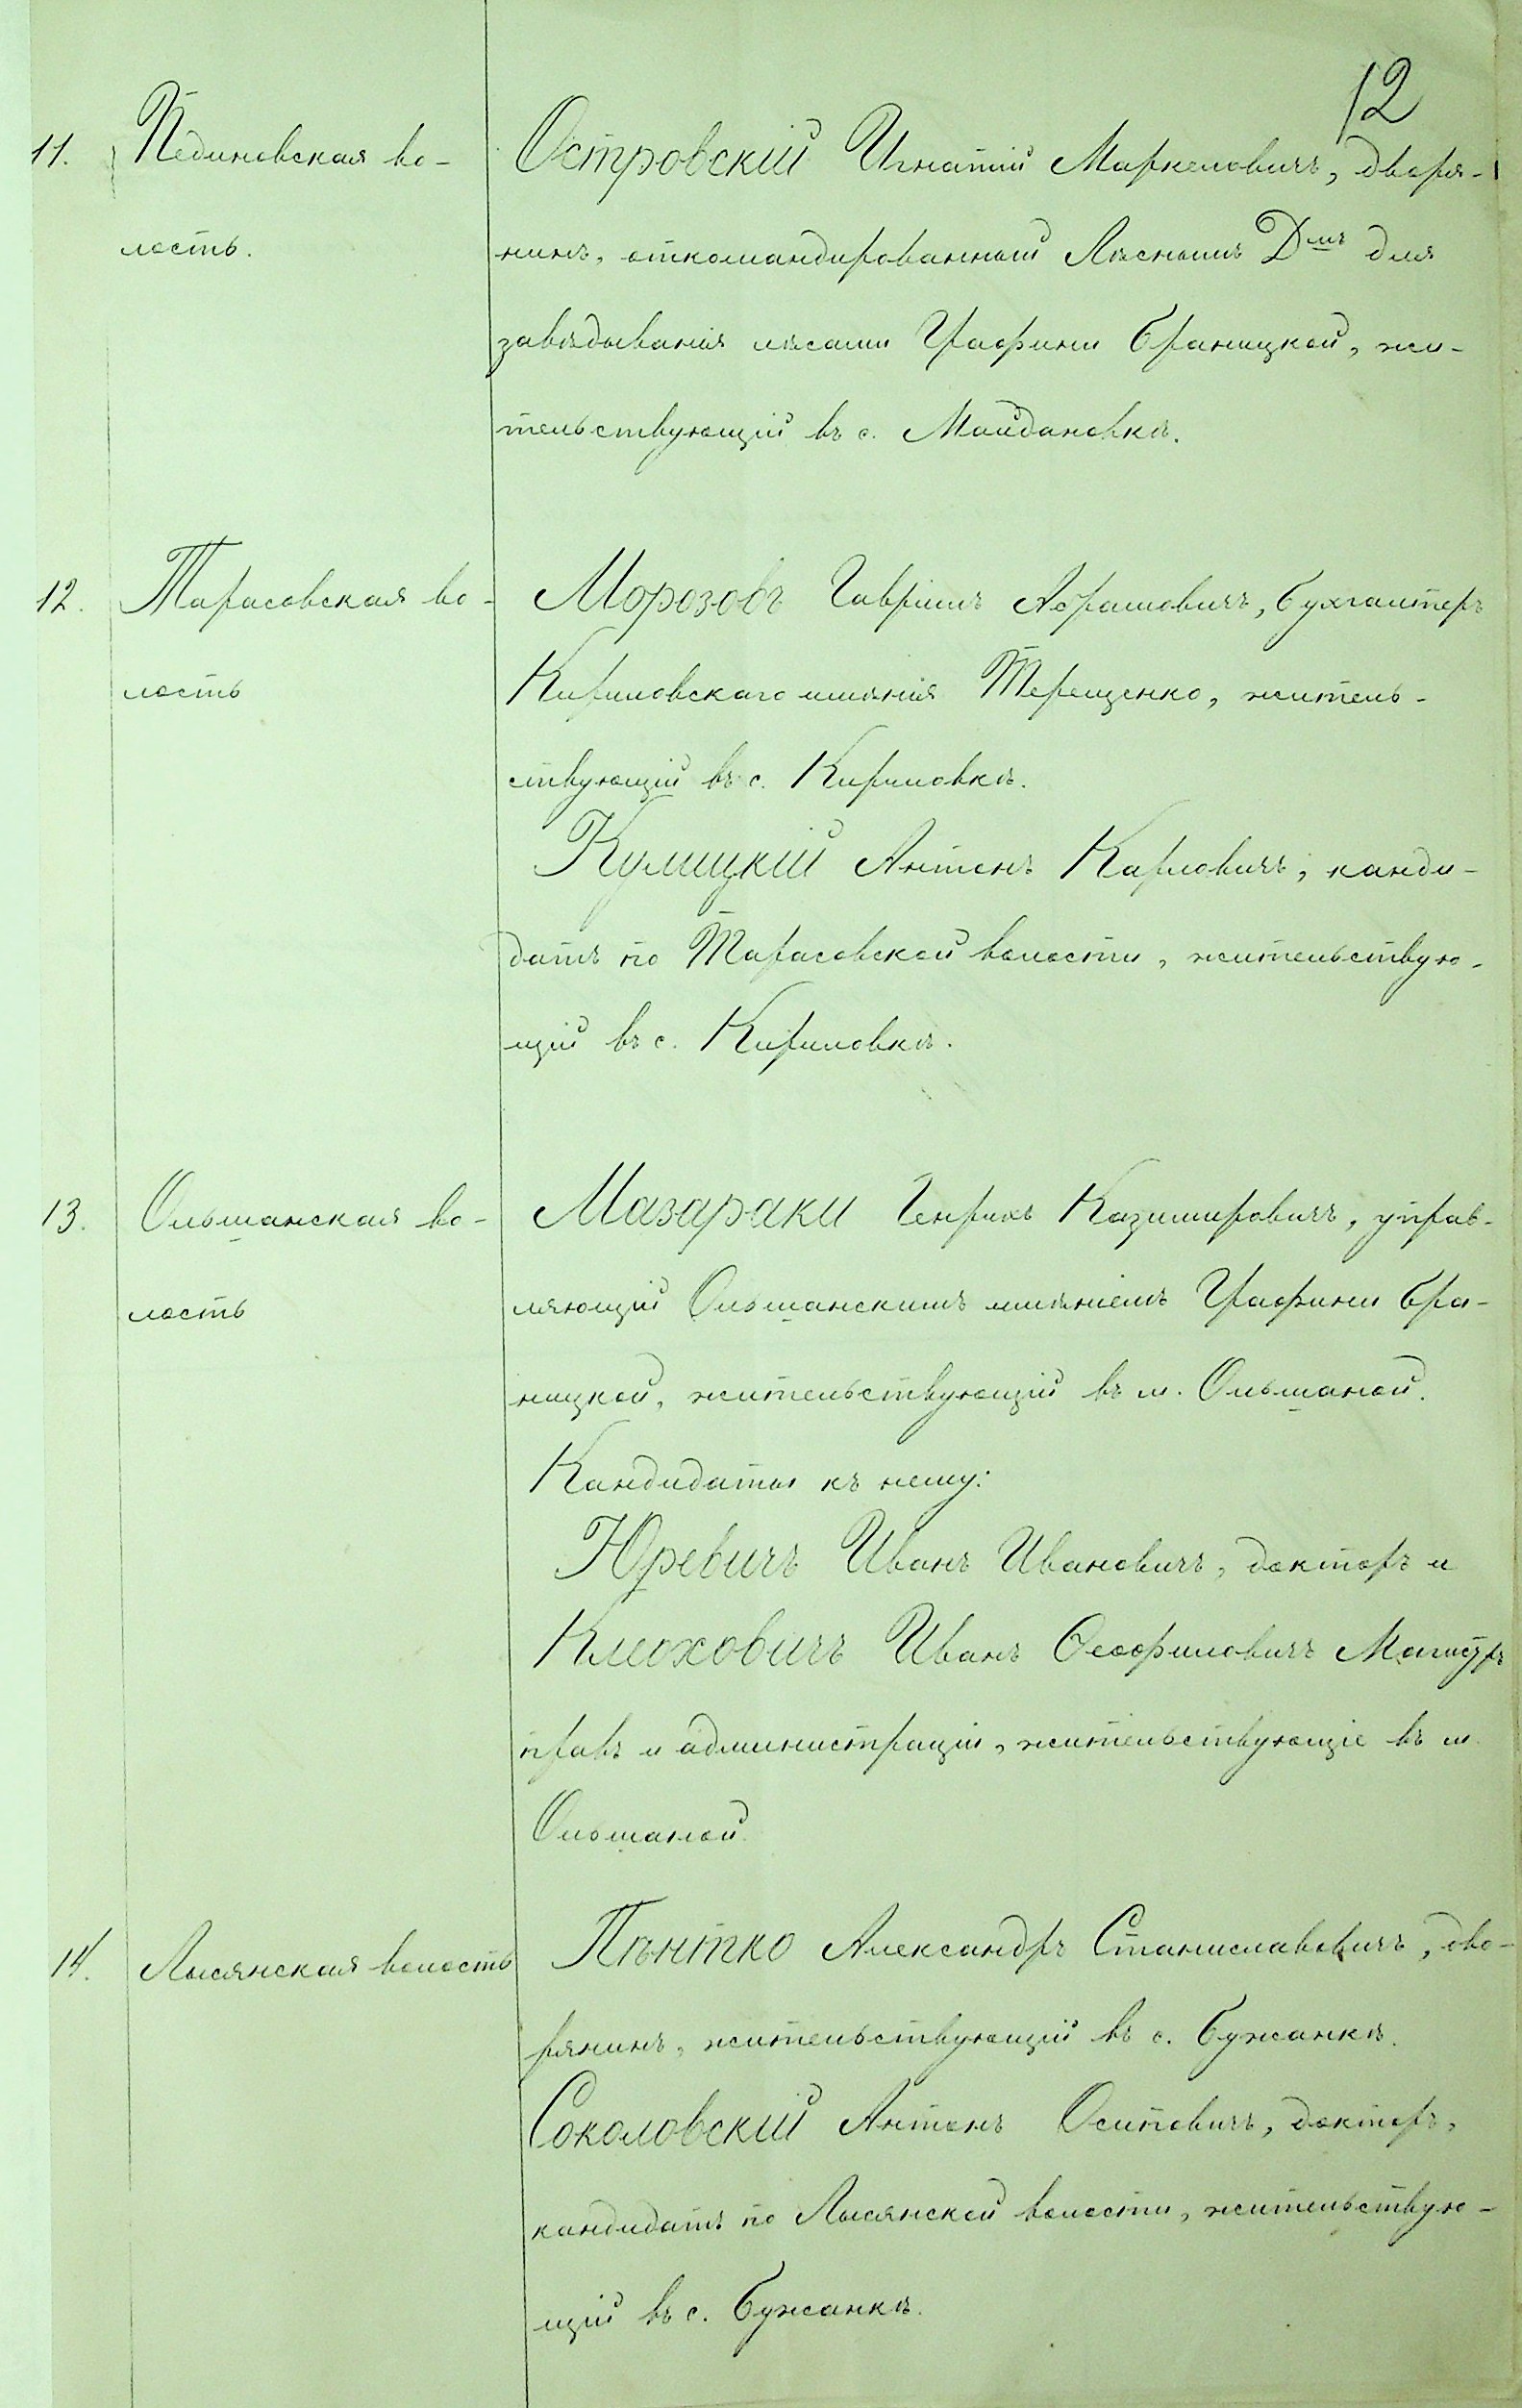 12
11. Пединовская во-
лость.
Островскій Игнатій Маркеловичъ, дворя-
нинъ, откомандированный Лѣснымъ Д-мъ для
завѣдыванія лѣсами Графини Браницкой, жи-
тельствующій въ с. Майдановкѣ.
12. Тарасовская во-
лость
Морозовъ Гавріилъ Абрамовичъ, бухгалтеръ
Кириловскаго имѣнія Терещенко, житель-
ствующій въ с. Кириловкѣ.
Кулицкій Антонъ Карловичъ, канди-
датъ по Тарасовской волости, жительствую-
щій въ с. Кириловкѣ.
13. Ольшанская во-
лость
Мазараки Генрихъ Казимировичъ, управ-
ляющій Ольшанскимъ имѣніемъ Графини Бра-
ницкой, жительствующій въ м. Ольшаной.
Кандидаты къ нему:
Юревичъ Иванъ Ивановичъ, докторъ и
Клюховичъ Иванъ Ѳеофиловичъ Магистръ
правъ и администраціи, жительствующіе въ м.
Ольшаной.
14. Лысянская волость
Пѣнтко Александръ Станиславовичъ, дво-
рянинъ, жительствующій въ с. Бужанкѣ.
Соколовскій Антонъ Осиповичъ, докторъ,
кандидатъ по Лысянской волости, жительствую-
щій въ с. Бужанкѣ.